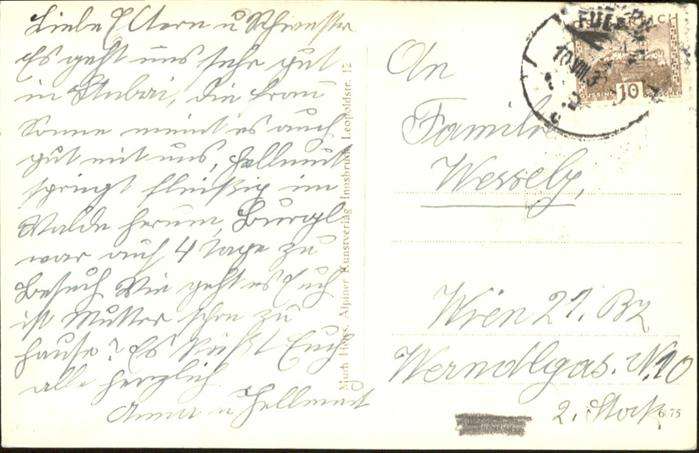 Liebe Eltern u Schwester
Es geht uns sehr gut
in Stubai, die Frau
Sonne meint es auch
gut mit uns, Hellmut
springt fleißig im
Walde herum, Burgl
war auf 4 Tage zu
Besuch Wie geht es Euch
ist Mutter schon zu
hause? Es küsst Euch
alle herzlich
Anna u Hellmut
Alpiner Kunstverlag Innsbruck, Leopoldstr. 12
An
Familie
Wessely,
Wien 21. Bz
Werndlgas. N.10
2. Stock
10
675